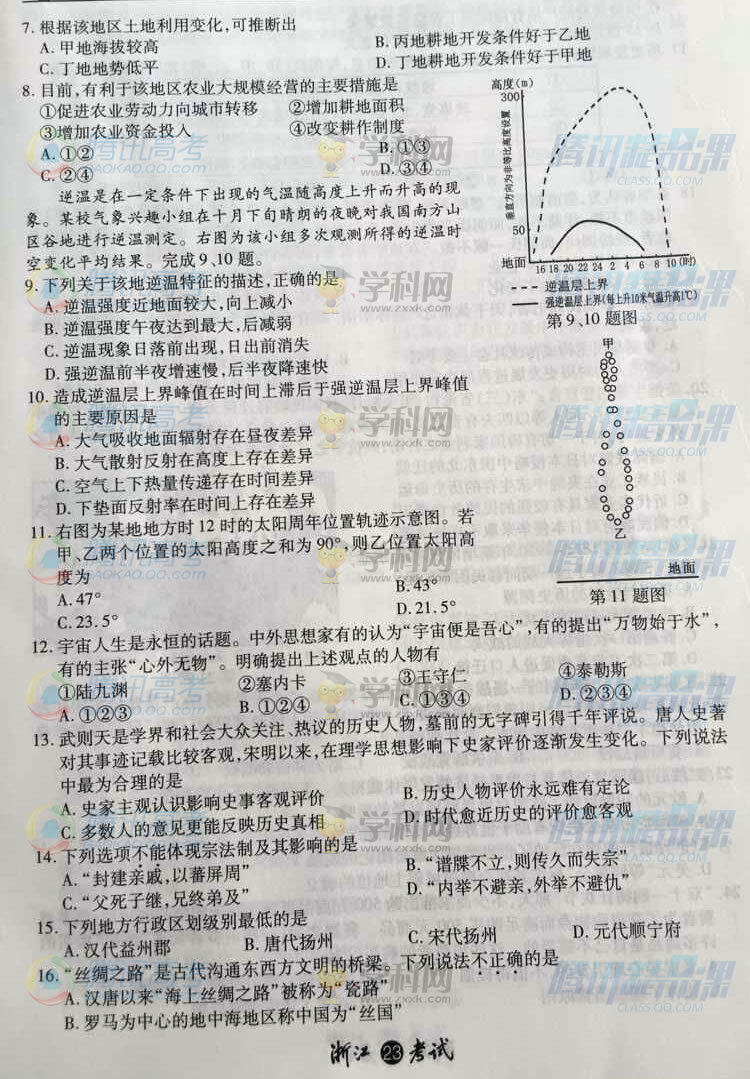 7. 根据该地区土地利用变化,可推断出
A. 甲地海拔较高
B. 丙地耕地开发条件好于乙地
C. 丁地地势低平
D. 丁地耕地开发条件好于甲地
8. 目前,有利于该地区农业大规模经营的主要措施是
①促进农业劳动力向城市转移 ②增加耕地面积
③增加农业资金投入 ④改变耕作制度
A. ①② B. ①③
C. ②④ D. ③④
逆温是在一定条件下出现的气温随高度上升而升高的现
象。某校气象兴趣小组在十月下旬晴朗的夜晚对我国南方山
区谷地进行逆温测定。右图为该小组多次观测所得的逆温时
空变化平均结果。完成9、10题。
高度(m)
300
垂直方向为非等比高度设置
50
地面
16 18 20 22 24 2 4 6 8 10 (时)
逆温层上界
强逆温层上界(每上升10米气温升高1℃)
第9、10题图
9. 下列关于该地逆温特征的描述,正确的是
A. 逆温强度近地面较大,向上减小
B. 逆温强度午夜达到最大,后减弱
C. 逆温现象日落前出现,日出前消失
D. 强逆温前半夜增速慢,后半夜降速快
10. 造成逆温层上界峰值在时间上滞后于强逆温层上界峰值
的主要原因是
A. 大气吸收地面辐射存在昼夜差异
B. 大气散射反射在高度上存在差异
C. 空气上下热量传递存在时间差异
D. 下垫面反射率在时间上存在差异
甲
乙
地面
第11题图
11. 右图为某地地方时12时的太阳周年位置轨迹示意图。若
甲、乙两个位置的太阳高度之和为90°,则乙位置太阳高
度为
A. 47° B. 43°
C. 23.5° D. 21.5°
12. 宇宙人生是永恒的话题。中外思想家有的认为“宇宙便是吾心”,有的提出“万物始于水”,
有的主张“心外无物”。明确提出上述观点的人物有
①陆九渊 ②塞内卡 ③王守仁 ④泰勒斯
A. ①②③ B. ①②④ C. ①③④ D. ②③④
13. 武则天是学界和社会大众关注、热议的历史人物,墓前的无字碑引得千年评说。唐人史著
对其事迹记载比较客观,宋明以来,在理学思想影响下史家评价逐渐发生变化。下列说法
中最为合理的是
A. 史家主观认识影响史事客观评价
B. 历史人物评价永远难有定论
C. 多数人的意见更能反映历史真相
D. 时代愈近历史的评价愈客观
14. 下列选项不能体现宗法制及其影响的是
A. “封建亲戚,以蕃屏周”
B. “谱牒不立,则传久而失宗”
C. “父死子继,兄终弟及”
D. “内举不避亲,外举不避仇”
15. 下列地方行政区划级别最低的是
A. 汉代益州郡 B. 唐代扬州 C. 宋代扬州 D. 元代顺宁府
16. “丝绸之路”是古代沟通东西方文明的桥梁。下列说法不正确的是
A. 汉唐以来“海上丝绸之路”被称为“瓷路”
B. 罗马为中心的地中海地区称中国为“丝国”
浙江 23 考试
腾讯高考
GAOKAO.QQ.COM
学科网
www.zxxk.com
腾讯精品课
CLASS.QQ.COM